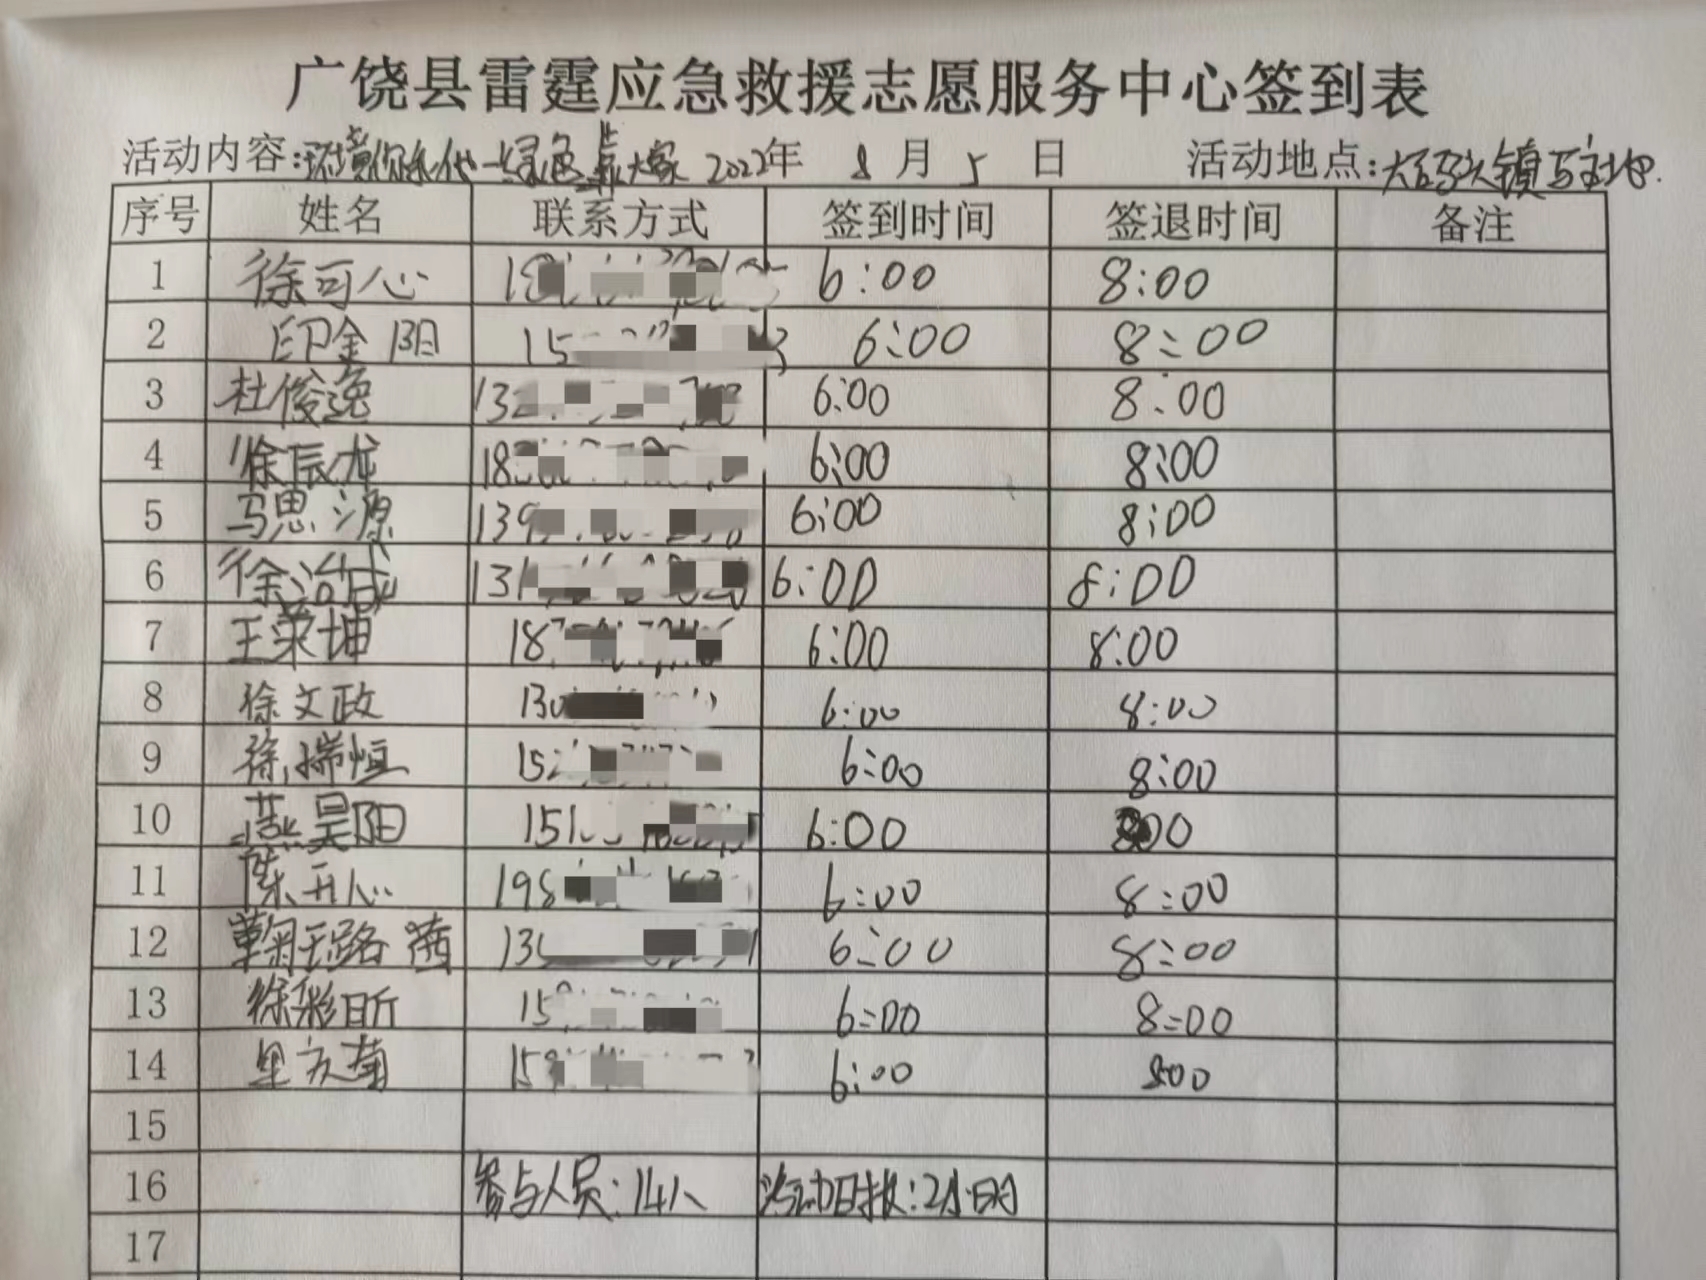 广饶县雷霆应急救援志愿服务中心签到表
活动内容: 环境你我他一绿色靠大家 2022年 8月5日 活动地点: 大码头镇
序号 姓名 联系方式 签到时间 签退时间 备注
1 徐可心 6:00 8:00
2 印金阳 15 6:00 8:00
3 杜俊逸 132 6:00 8:00
4 徐辰龙 18 6:00 8:00
5 马思源 139 6:00 8:00
6 徐浩成 131 6:00 8:00
7 王荣坤 18 6:00 8:00
8 徐文政 130 6:00 8:00
9 徐瑞恒 15 6:00 8:00
10 燕昊阳 151 6:00 800
11 陈开心 198 6:00 8:00
12 鞠璐茜 13 6:00 8:00
13 徐彩昕 15 6:00 8:00
14 15 6:00 800
15
16 参与人员:14人 活动时长:2小时
17